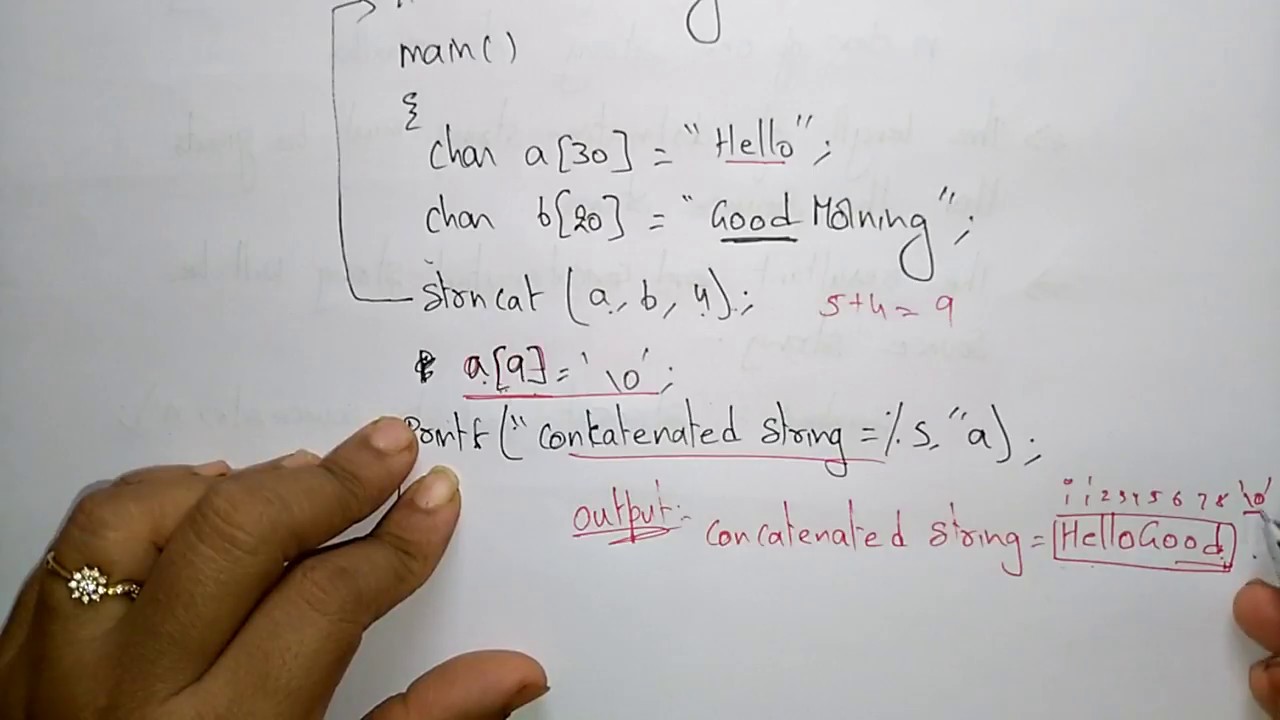 main()
{
char a[30] = "Hello";
char b[20] = "Good Morning";
strncat (a, b, 4);
5+4=9
a[9]='\0';
Printf ("concatenated string =%s"a);
output:-
1 2 3 4 5 6 7 8 '\0'
concatenated string = HelloGood